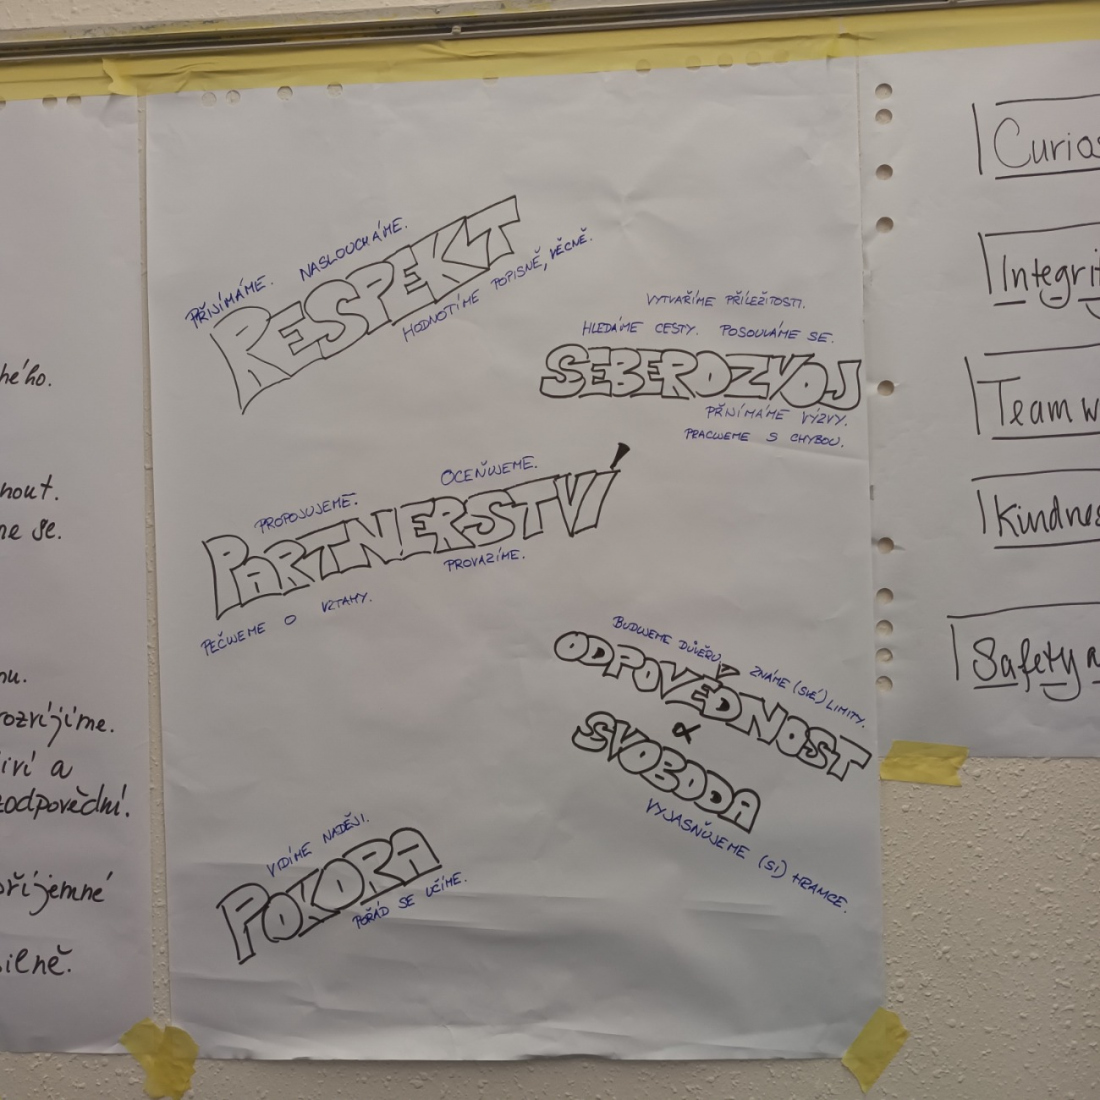 hého.
nout.
me se.
nu.
rozvíjíme.
iví a
zodpovědní.
příjemné
silně.
PŘIJÍMÁME. NASLOUCHÁME.
RESPEKT
HODNOTÍME POPISNĚ, VĚCNĚ.
VYTVAŘÍME PŘÍLEŽITOSTI.
HLEDÁME CESTY. POSOUVÁME SE.
SEBEROZVOJ
PŘIJÍMÁME VÝZVY.
PRACUJEME S CHYBOU.
PROPOJUJEME. OCEŇUJEME.
PARTNERSTVÍ
PROVÁZÍME.
PEČUJEME O VZTAHY.
BUDUJEME DŮVĚRU, ZNÁME (SVÉ) LIMITY.
ODPOVĚDNOST
&
SVOBODA
VYJASŇUJEME (SI) HRANICE.
VIDÍME NADĚJI.
POKORA
POŘÁD SE UČÍME.
Curios
Integrit
Teamw
Kindnes
Safety a